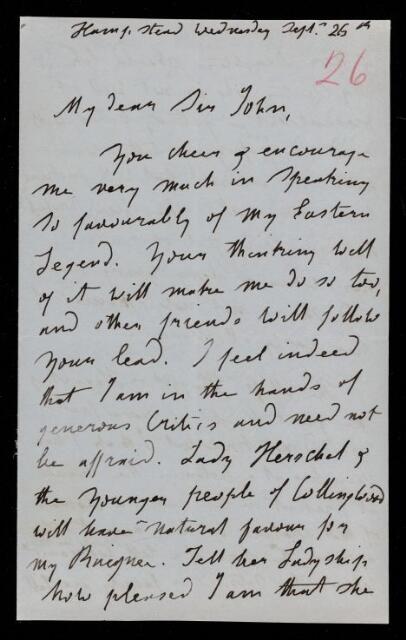 Hampstead Wednesday Sept. 26th
26
My dear Sir John,
You cheer & encourage
me very much in speaking
so favourably of my Eastern
Legend. Your thinking well
of it will make me do so too,
and other friends will follow
your lead. I feel indeed
that I am in the hands of
generous Critics and need not
be affraid. Lady Herschel &
the younger people of Collingwood
will have natural favour for
my
Tell her Ladyship
how pleased I am that she